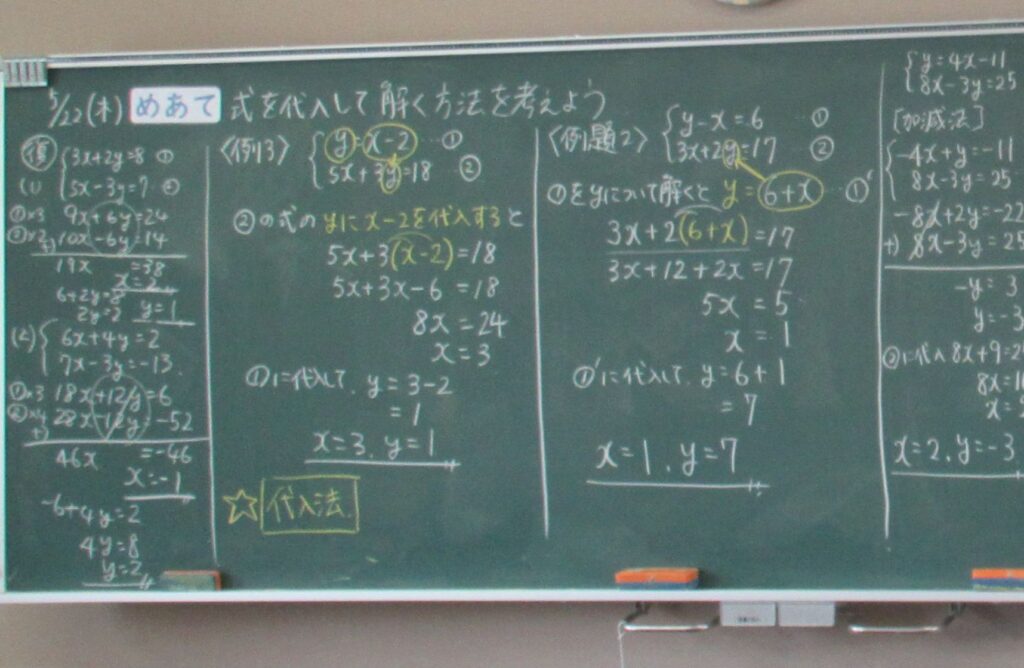 5/22(木) めあて 式を代入して解く方法を考えよう
復
(1)
3x+2y=8 ①
5x-3y=7 ②
①×3 9x+6y=24
②×2 +) 10x-6y=14
19x =38
x=2
6+2y=8
2y=2 y=1
(2)
6x+4y=2
7x-3y=-13
①×3 18x+12y=6
②×4 +) 28x-12y=-52
46x =-46
x=-1
-6+4y=2
4y=8
y=2
〈例3〉
y=x-2 ①
5x+3y=18 ②
②の式のyにx-2を代入すると
5x+3(x-2)=18
5x+3x-6=18
8x=24
x=3
①に代入して、y=3-2
=1
x=3, y=1
☆ 代入法
〈例題2〉
y-x=6 ①
3x+2y=17 ②
①をyについて解くと y=6+x ①'
3x+2(6+x)=17
3x+12+2x=17
5x=5
x=1
①'に代入して、y=6+1
=7
x=1, y=7
y=4x-11
8x-3y=25
[加減法]
-4x+y=-11
8x-3y=25
-8x+2y=-22
+) 8x-3y=25
-y=3
y=-3
②に代入 8x+9=2
8x=1
x=
x=2, y=-3